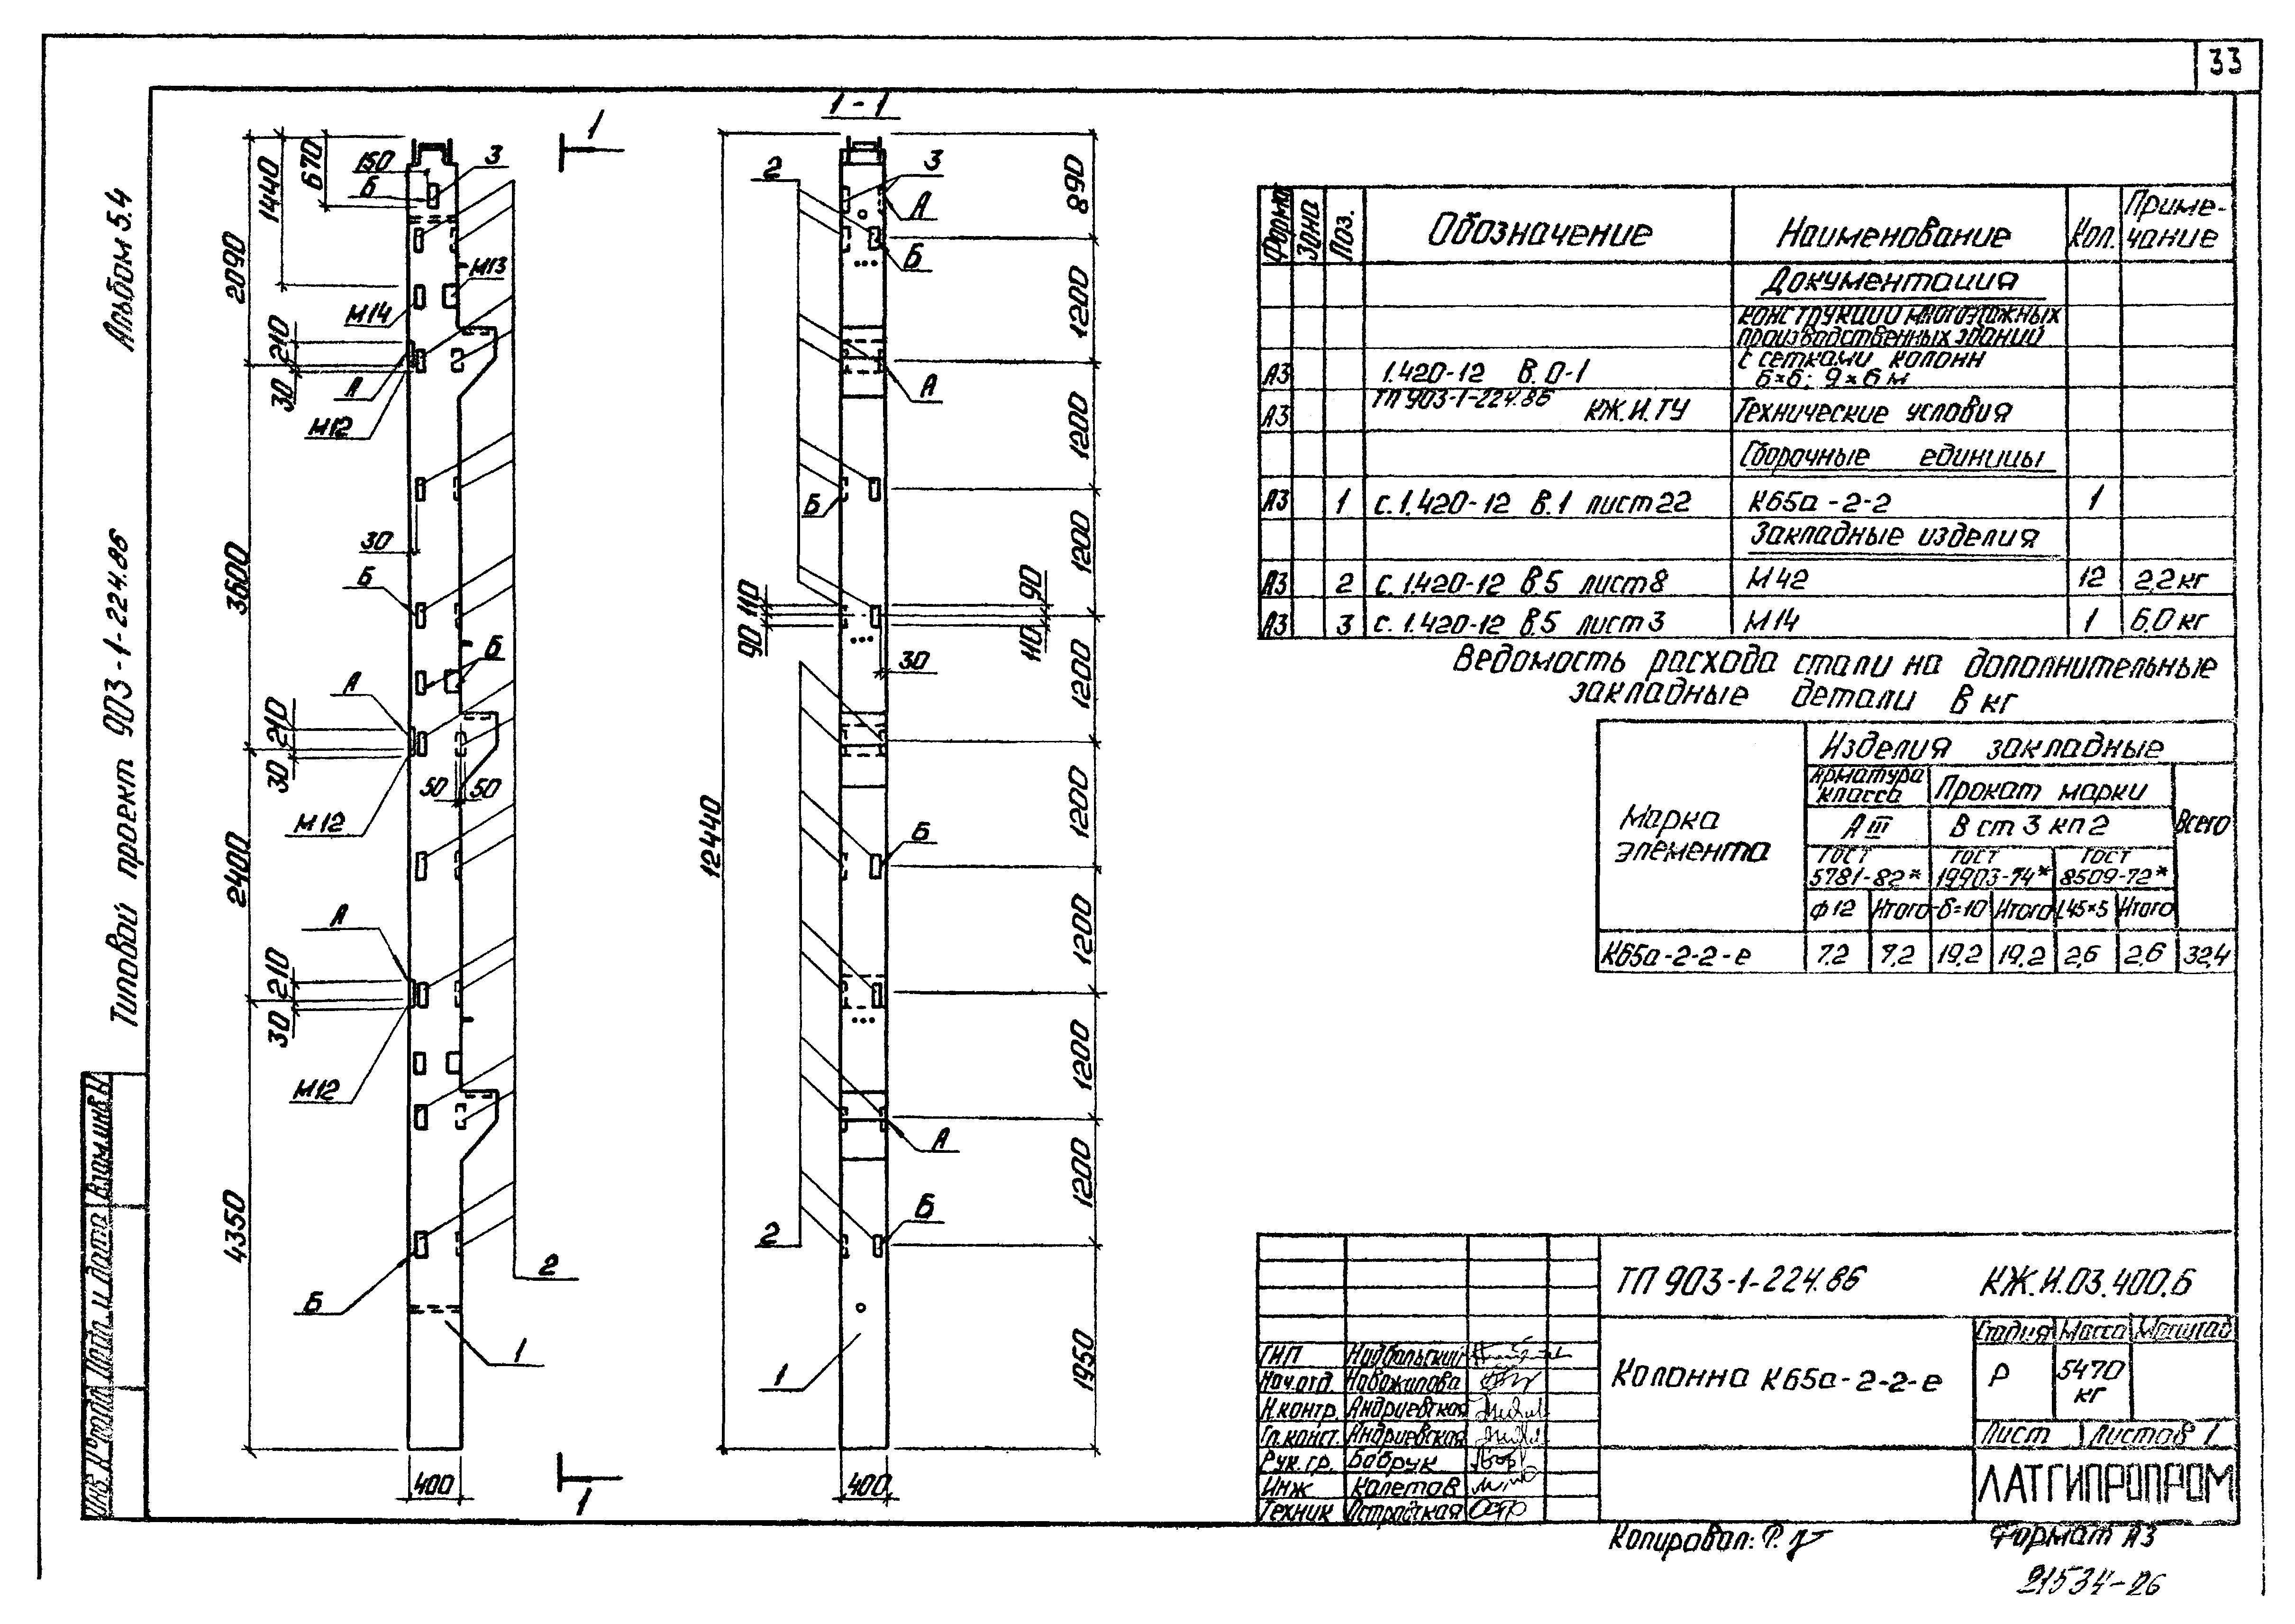 33
Альбом 5.4
Типовой проект 903-1-224.86
Взам.инв.N
Подп. и дата
Инв. N°подл.
1
1-1
670
1440
2090
210
30
3600
210
30
2400
210
30
4350
150
Б
3
М13
М14
А
М12
30
Б
Б
А
50
50
М12
А
М12
Б
2
1
400
1
12440
2
3
А
Б
А
Б
110
90
90
110
30
Б
А
Б
2
1
400
890
1200
1200
1200
1200
1200
1200
1200
1200
1950
Форма
Зона
Поз.
Обозначение
Наименование
Кол.
Приме-
чание
Документация
Конструкции многоэтажных
производственных зданий
с сетками колонн
6×6; 9×6м
А3 1.420-12 В.0-1
А3 ТП 903-1-224.86 КЖ.И.ТУ Технические условия
Сборочные единицы
А3 1 с.1.420-12 В.1 лист 22 К65а-2-2 1
Закладные изделия
А3 2 с.1.420-12 В.5 лист 8 М42 12 2,2кг
А3 3 с.1.420-12 В.5 лист 3 М14 1 6,0кг
Ведомость расхода стали на дополнительные
закладные детали В кг
Марка
элемента
Изделия закладные
Арматура
класса
Прокат марки
Всего
А III
В ст 3 кп 2
ГОСТ
5781-82*
ГОСТ
19903-74*
ГОСТ
8509-72*
ф12 Итого -δ=10 Итого L45×5 Итого
К65а-2-2-е 7.2 7.2 19.2 19.2 2,6 2.6 32,4
ТП 903-1-224.86 КЖ.И.03.400.6
Колонна К65а-2-2-е
Стадия Масса Масштаб
Р 5470
кг
Лист Листов 1
ЛАТГИПРОПРОМ
ГИП
Нач.отд. Новожилова
Н.контр. Андриевская
Гл.конст. Андриевская
Рук.гр. Бабрук
Инж Калетов
Техник
Копировал:
Формат А3
21534-26